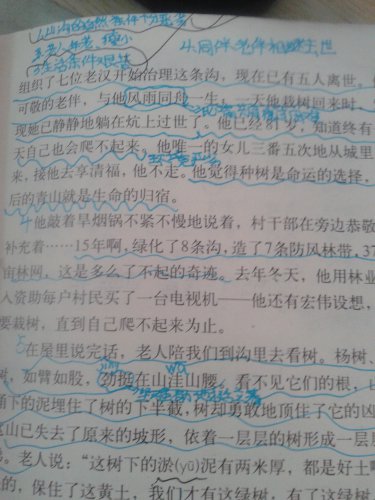 1.山沟的自然条件十分恶劣
2.老人年老、瘦小
4.同伴、老伴相继去世
3.生活条件艰苦
组织了七位老汉开始治理这条沟，现在已有五人离世。他
可敬的老伴，与他风雨同舟一生，一天他栽树回来时，
现她已静静地躺在炕上过世了。他已经81岁，知道终有
天自己也会爬不起来。他唯一的女儿三番五次地从城里
来，接他去享清福，他不走。他觉得种树是命运的选择，
后的青山就是生命的归宿。
他敲着旱烟锅不紧不慢地说着，村干部在旁边恭敬
补充着……15年啊，绿化了8条沟，造了7条防风林带，37
亩林网，这是多么了不起的奇迹。去年冬天，他用林业
人资助每户村民买了一台电视机——他还有宏伟设想，
要栽树，直到自己爬不起来为止。
在屋里说完话，老人陪我们到沟里去看树。杨树、
，如臂如股，劲挺在山洼山腰。看不见它们的根，
涌下的泥埋住了树的下半截，树却勇敢地顶住了它的凶
山已失去了原来的坡形，依着一层层的树形成一层
。老人说：“这树下的淤(yū)泥有两米厚，都是好土
的，保住了这黄土，我们才有这绿树，有了这绿树